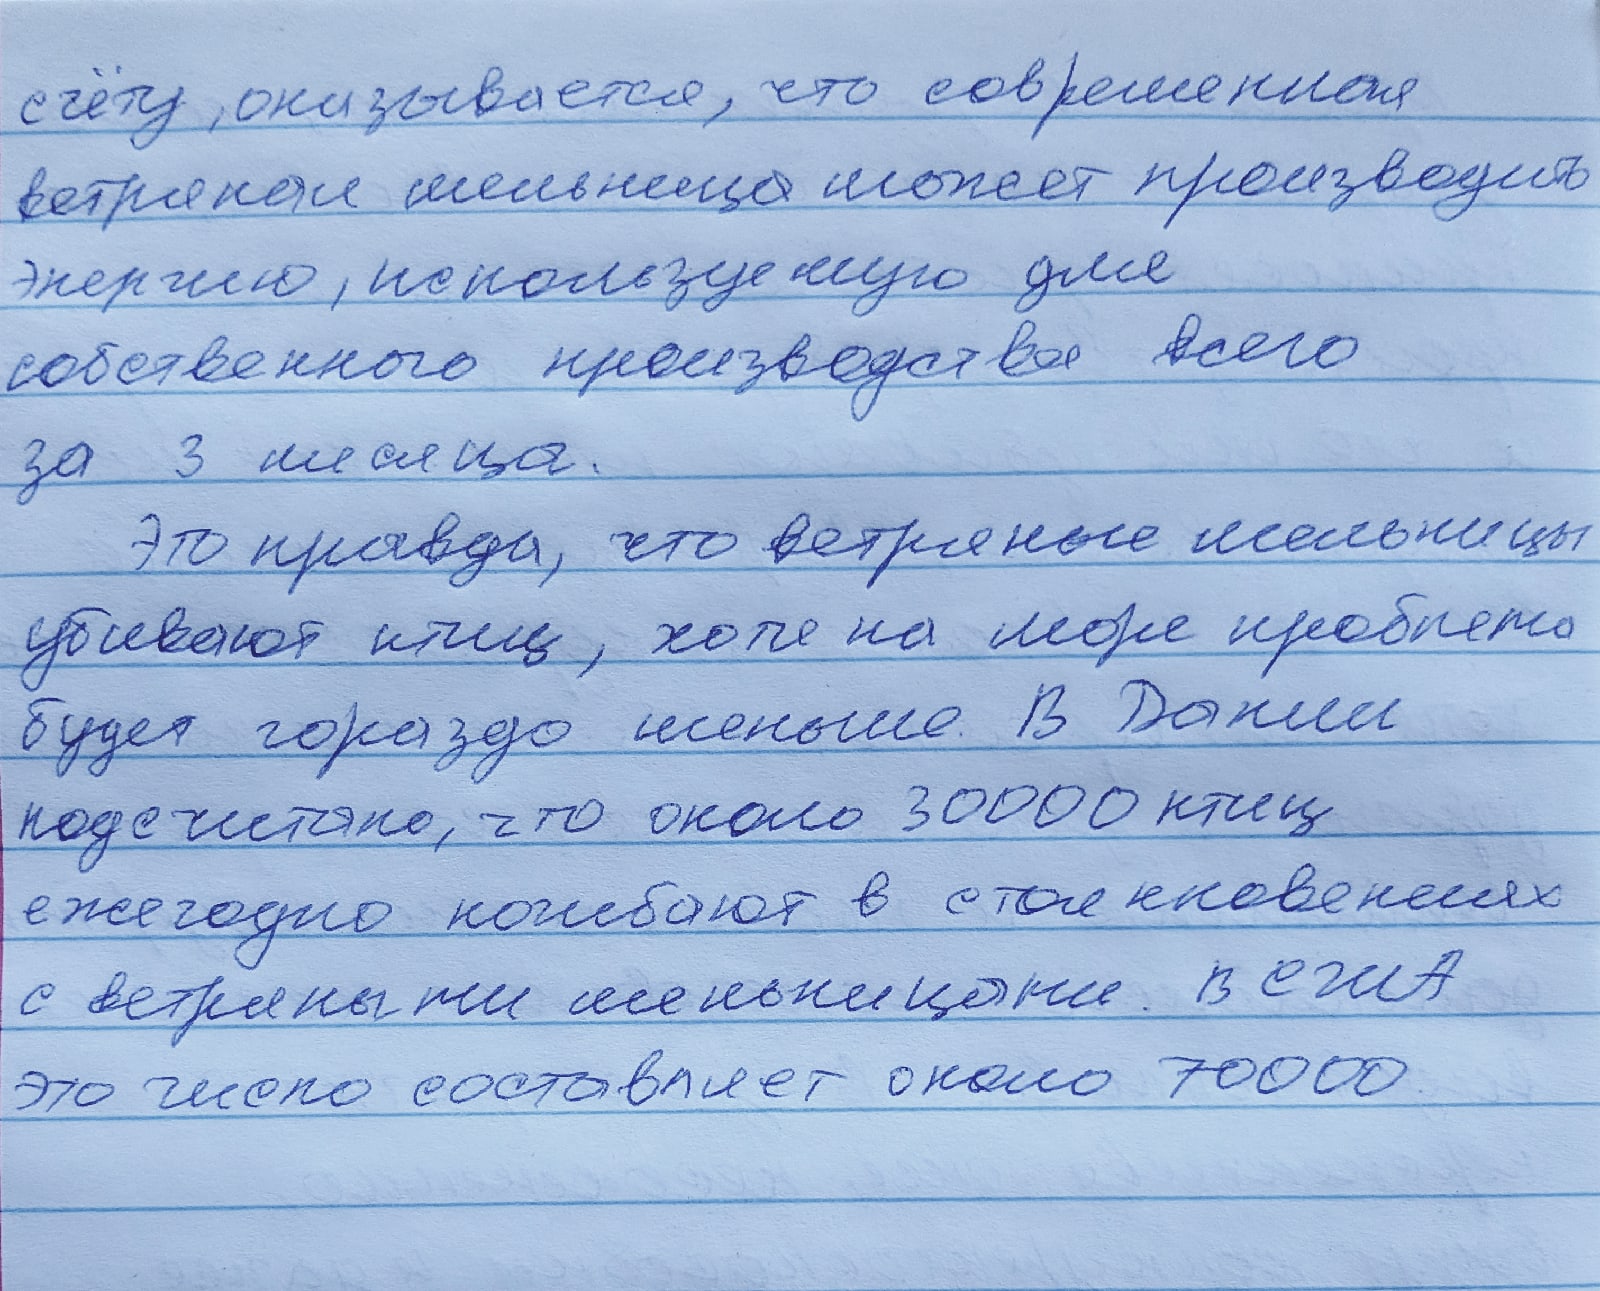 счёту, оказывается, что современная
ветряная мельница может производить
энергию, используемую для
собственного производства всего
за 3 месяца.
Это правда, что ветряные мельницы
убивают птиц, хотя на море проблема
будет гораздо меньше. В Дании
подсчитано, что около 30000 птиц
ежегодно погибают в столкновениях
с ветряными мельницами. В США
это число составляет около 70000.